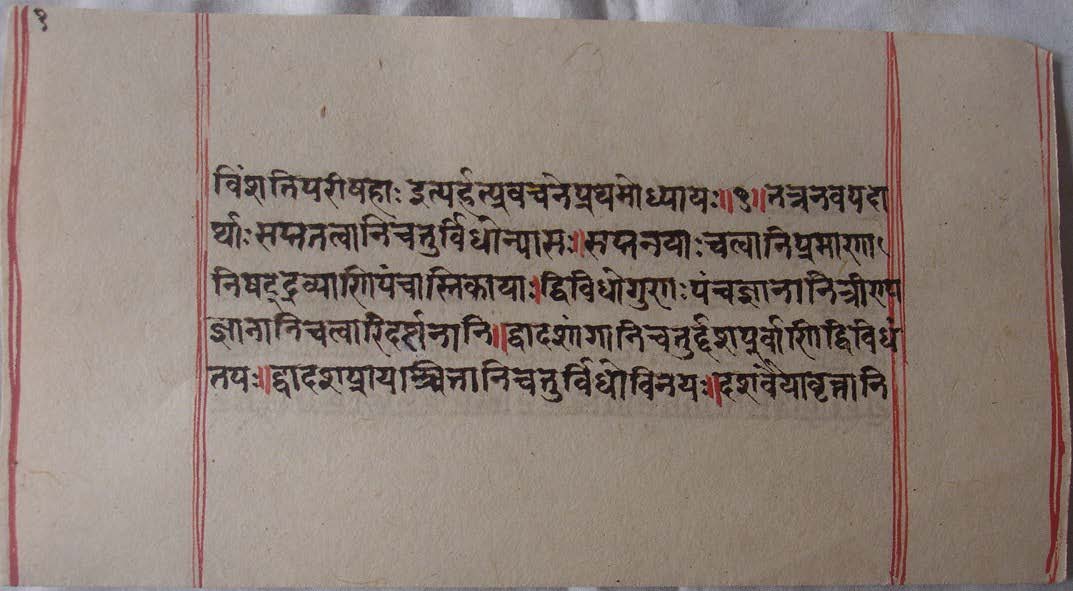 १
विंशतिपरीषहाः इत्यर्हत्प्रवचने प्रथमोध्यायः॥१॥तत्रनवपदा
र्थाः सप्ततत्वानि चतुर्विधोन्यासः॥सप्तनयाः चत्वानिप्रमाणा
निषट्द्रव्याणिपंचास्तिकायाः॥द्विविधोगुणाः पंचज्ञानानित्रीण्य
ज्ञानानिचत्वारिदर्शनानि॥द्वादशांगानिचतुर्द्दशपूर्वाणिद्विविधं
तपः॥द्वादशप्रायाश्चित्तानिचतुर्विधोविनयः॥दशवैयावृत्तानि